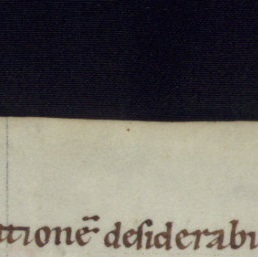 ationē desiderabu